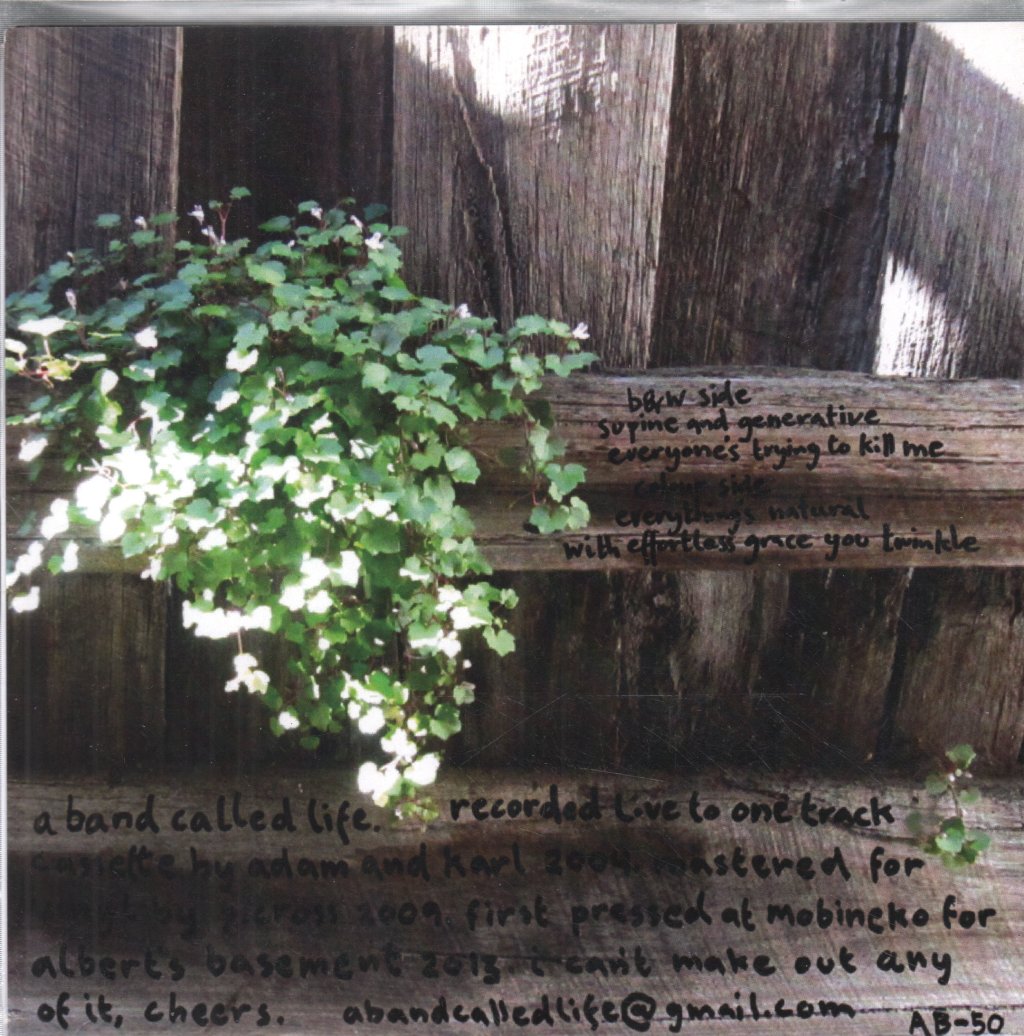 b&w side
supine and generative
everyone's trying to kill me
colour side
everything's natural
with effortless grace you twinkle
a band called life. recorded live to one track
cassette by adam and karl 2004. mastered for
by picross 2009. first pressed at mobineko for
albert's basement 2013. i can't make out any
of it, cheers. abandcalledlife@gmail.com
AB-50